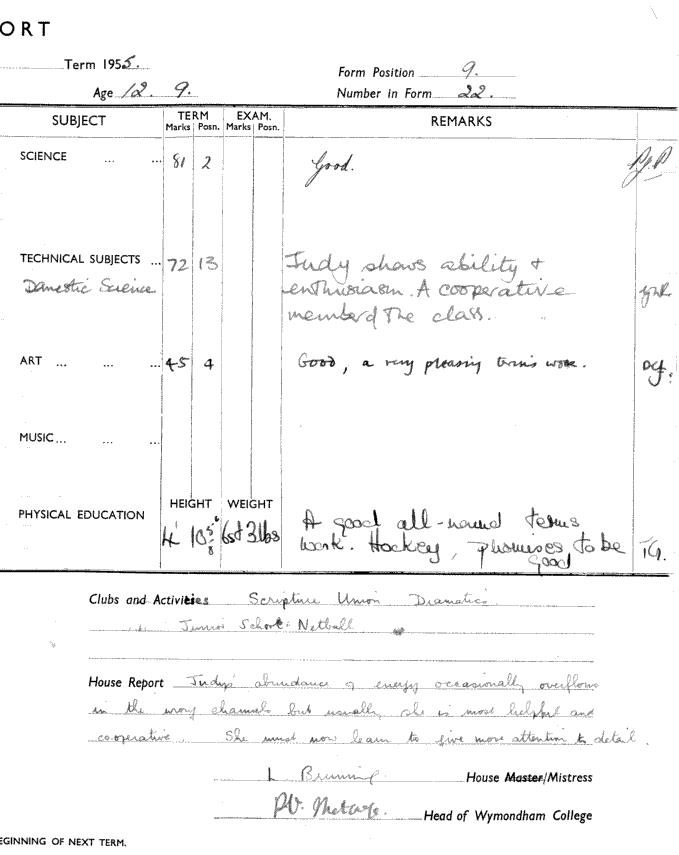 ORT
Term 1955. Form Position 9.
Age 12. 9. Number in Form 22.
SUBJECT TERM EXAM. REMARKS
Marks Posn. Marks Posn.
SCIENCE ... ... 81 2 Good. P.J.P
TECHNICAL SUBJECTS ... 72 13 Judy shows ability +
Domestic Science enthusiasm. A cooperative
member of the class.
ART ... ... ... 45 4 Good, a very pleasing term's work.
MUSIC... ... ...
HEIGHT WEIGHT
PHYSICAL EDUCATION 4' 10 5/8" 6st 3lbs A good all-round terms
work. Hockey, promises to be
good
Clubs and Activities Scripture Union Dramatics
Junior School Netball
House Report Judys' abundance of energy occasionally overflows
in the wrong channels but usually she is most helpful and
cooperative. She must now learn to give more attention to detail.
L Brunning House Master/Mistress
Head of Wymondham College
EGINNING OF NEXT TERM.